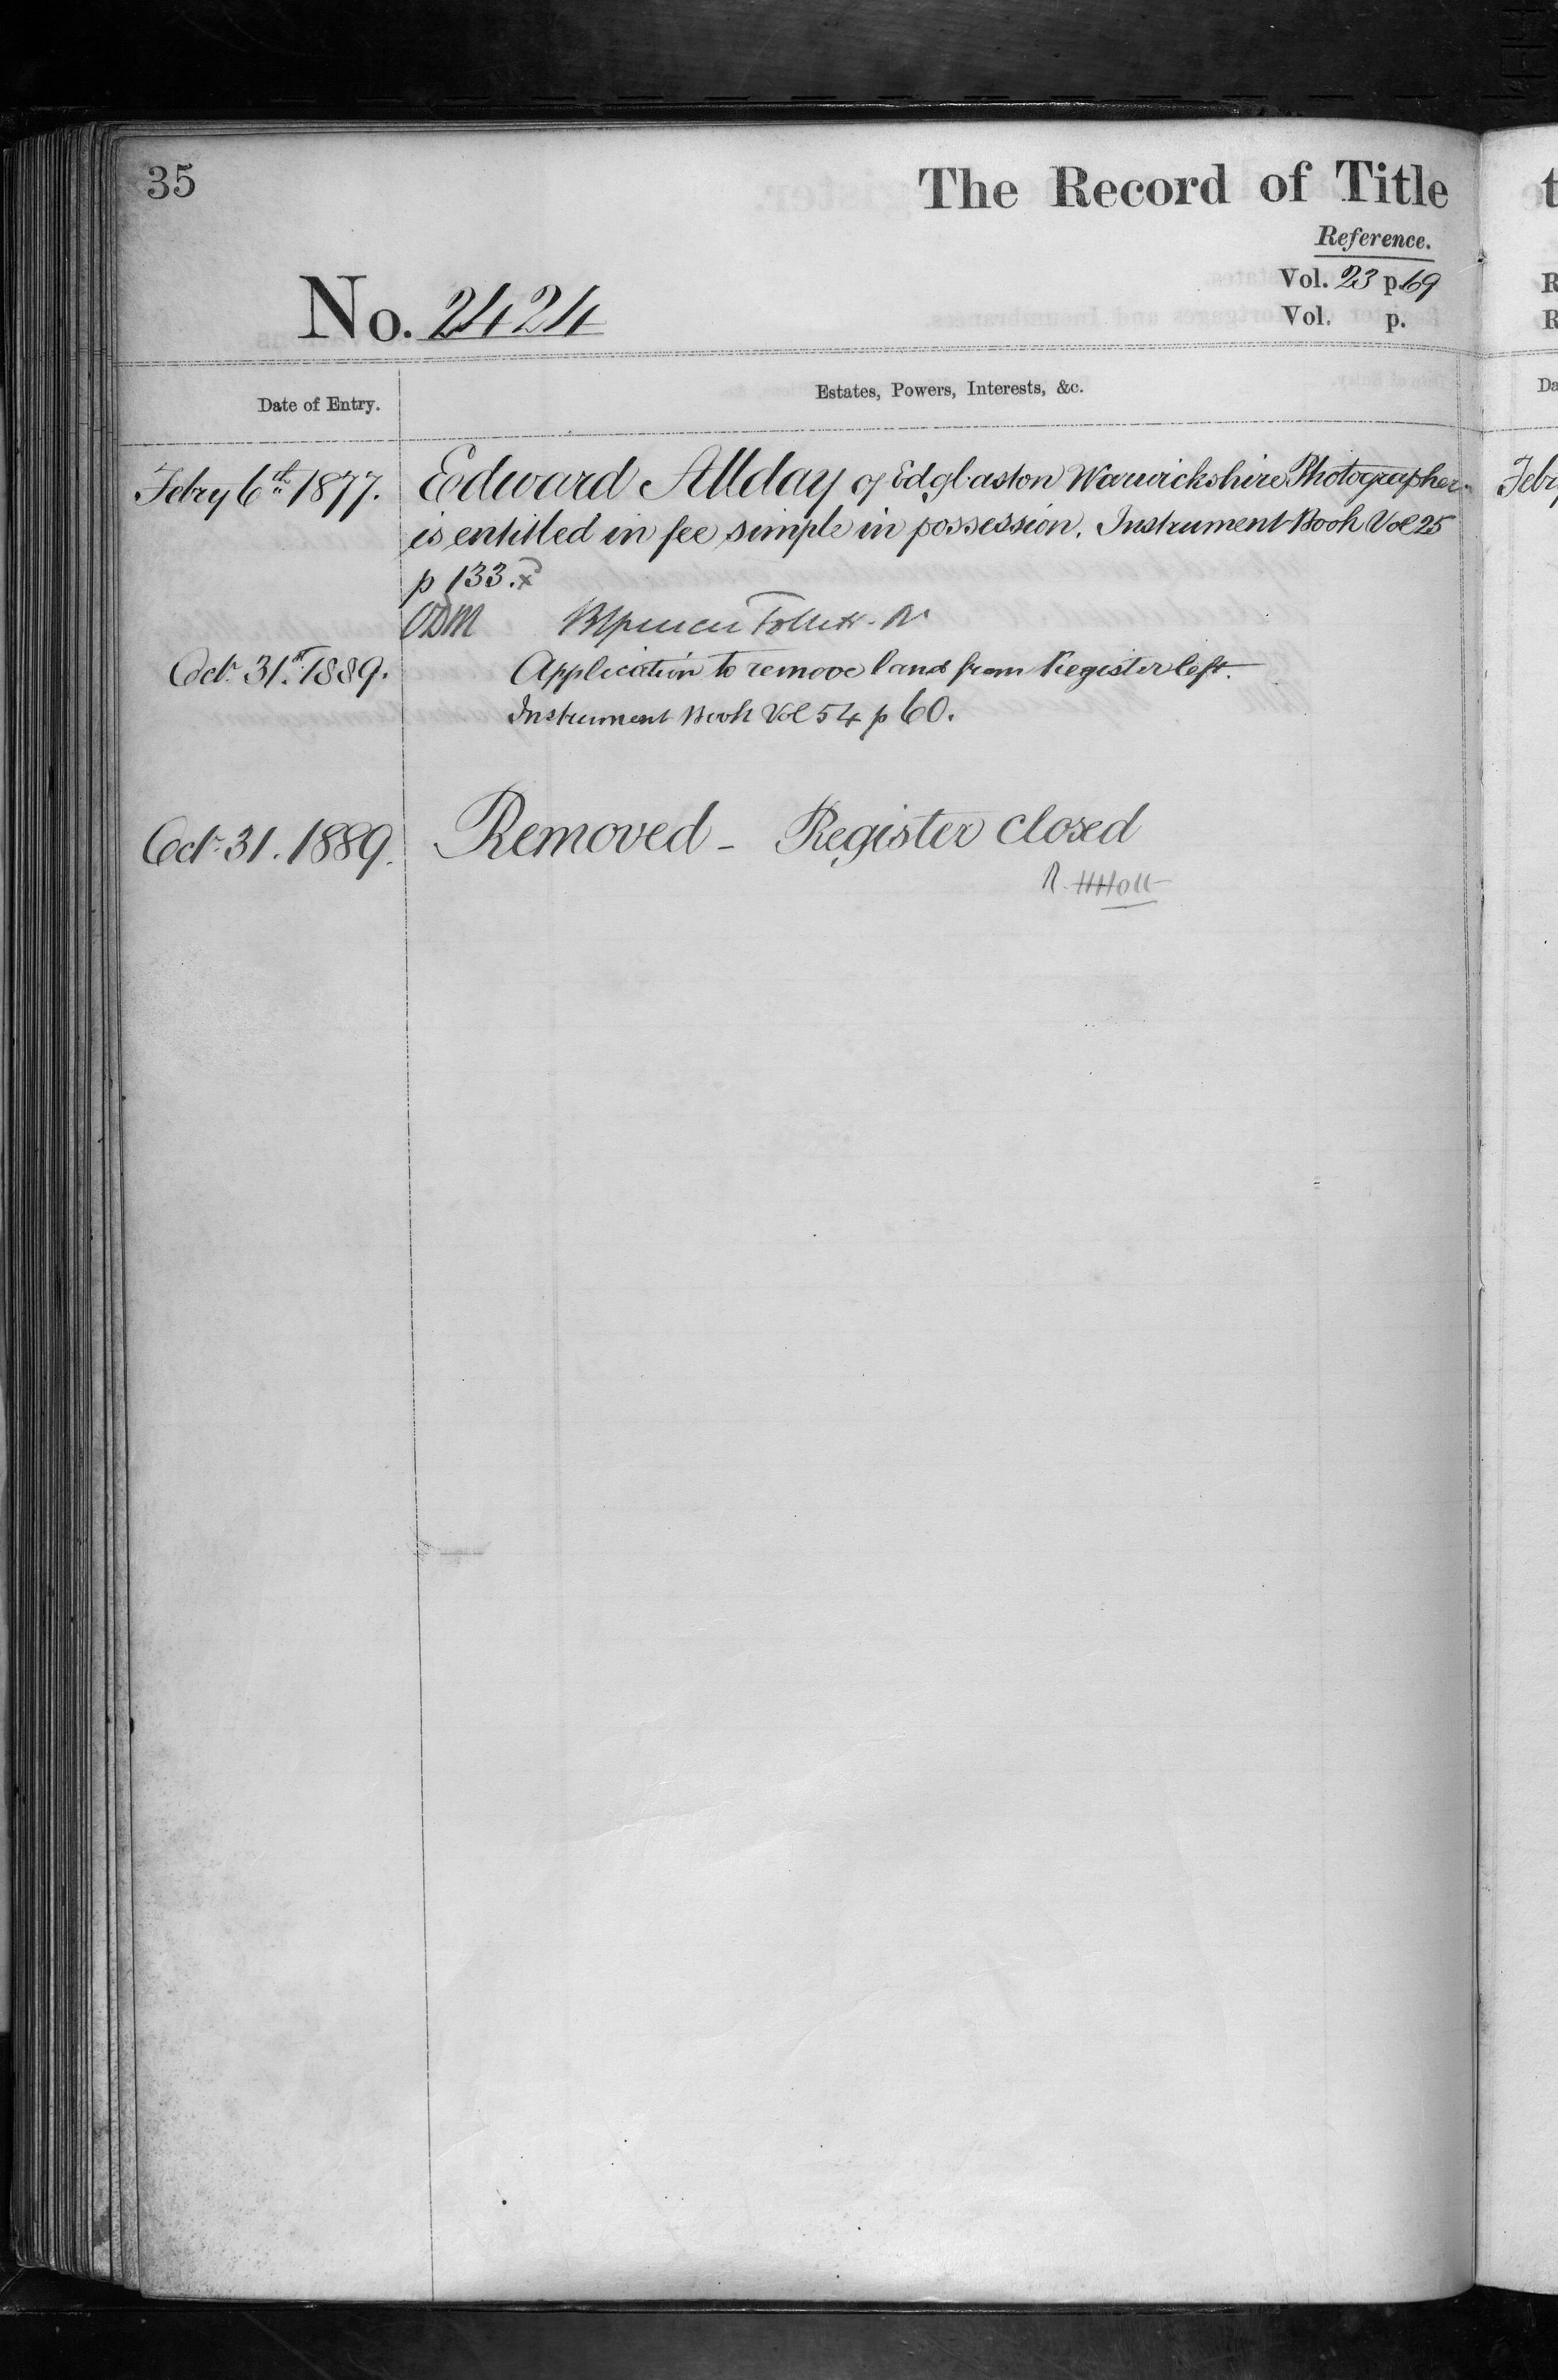 35
The Record of Title
Reference.
Vol. 23 p. 69
No. 2424
Vol. p.
Date of Entry.
Estates, Powers, Interests, &c.
Febry 6th 1877.
Edward Allday of Edgbaston Warwickshire Photographer
is entitled in fee simple in possession. Instrument Book Vol 25
p 133.
ODM
Octr. 31st. 1889.
Application to remove land from Register left.
Instrument Book Vol 54 p 60.
Octr. 31. 1889.
Removed - Register closed
R. H Holt